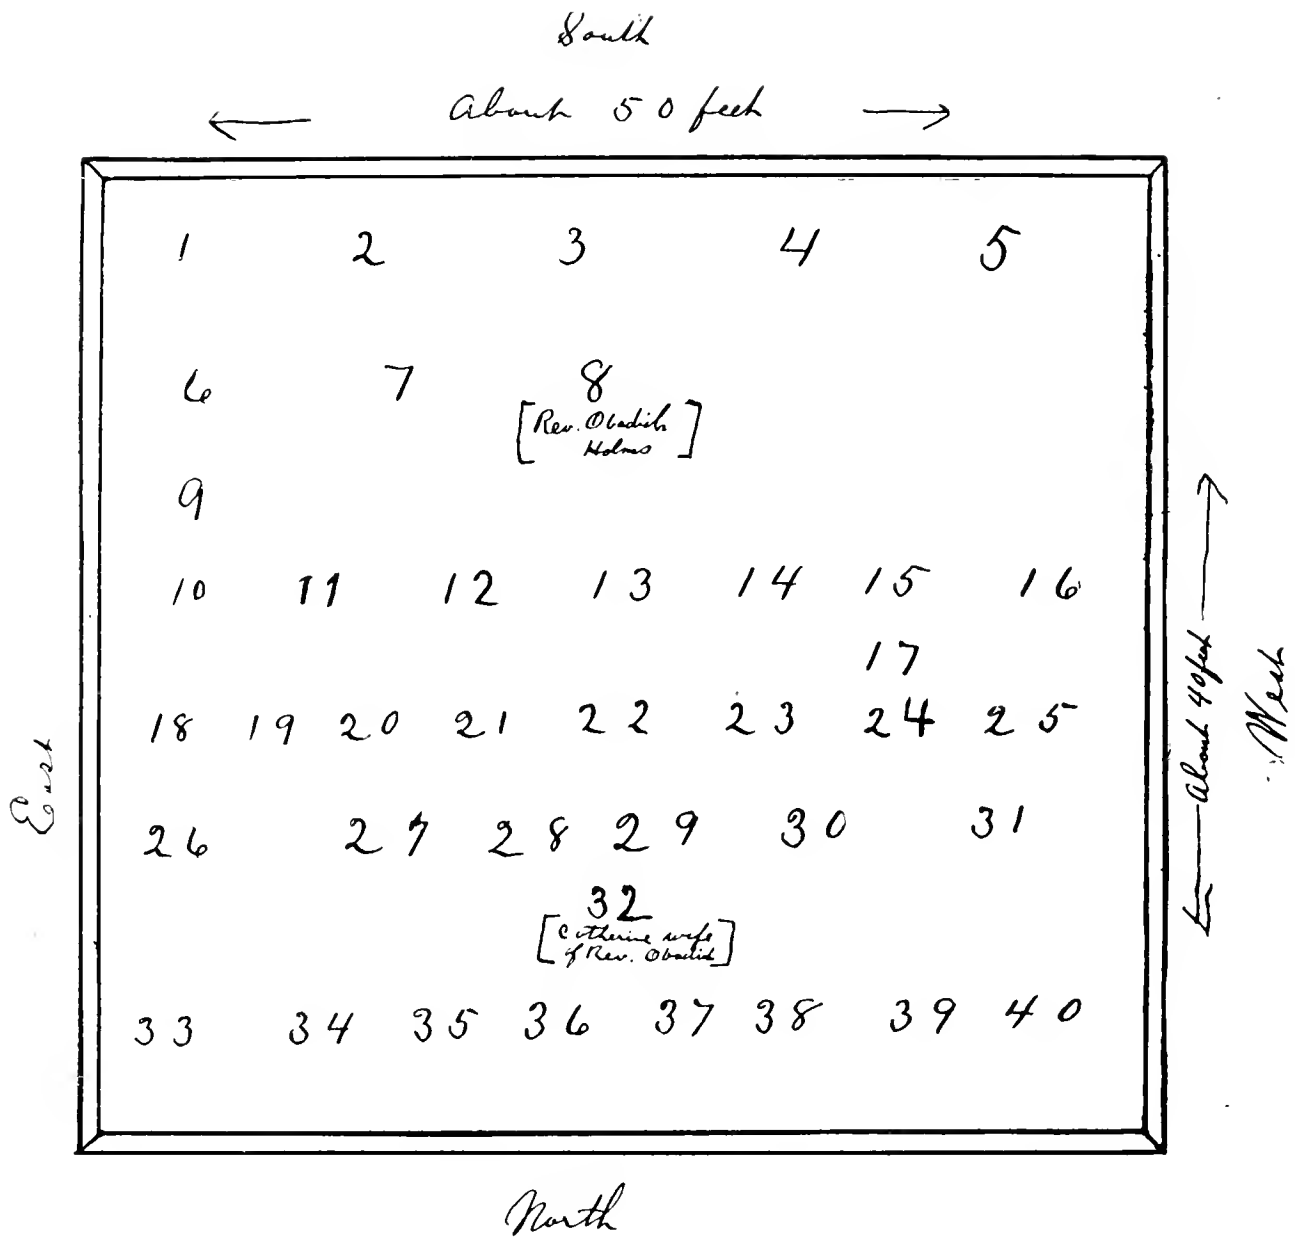 South
About 50 feet
1 2 3 4 5
6 7 8
[Rev. Obadiah
Holmes]
9
10 11 12 13 14 15 16
17
18 19 20 21 22 23 24 25
26 27 28 29 30 31
32
[Catherine wife
of Rev. Obadiah]
33 34 35 36 37 38 39 40
East
About 40 feet
West
North